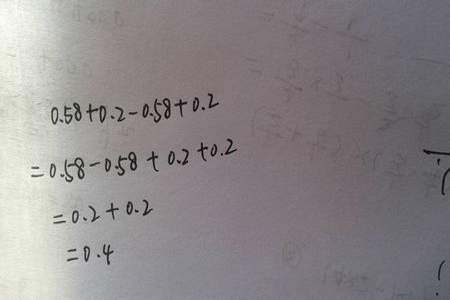 0.58+0.2-0.58+0.2
=0.58-0.58+0.2+0.2
=0.2+0.2
=0.4